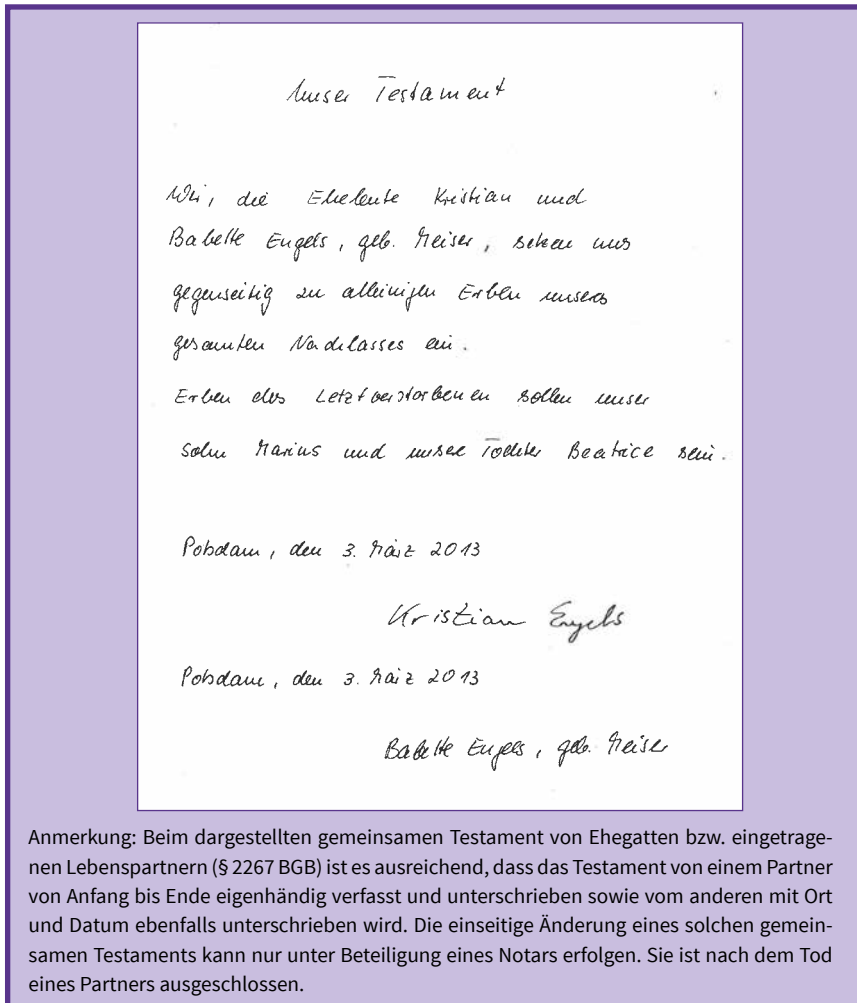 Unser Testament
Wir, die Eheleute Kristian und
Babette Engels, geb. Meiser, setzen uns
gegenseitig zu alleinigen Erben unseres
gesamten Nachlasses ein.
Erben des Letztverstorbenen sollen unser
Sohn Marius und unsere Tochter Beatrice sein.
Potsdam, den 3. März 2013
Kristian Engels
Potsdam, den 3. März 2013
Babette Engels, geb. Meiser
Anmerkung: Beim dargestellten gemeinsamen Testament von Ehegatten bzw. eingetrage-
nen Lebenspartnern (§ 2267 BGB) ist es ausreichend, dass das Testament von einem Partner
von Anfang bis Ende eigenhändig verfasst und unterschrieben sowie vom anderen mit Ort
und Datum ebenfalls unterschrieben wird. Die einseitige Änderung eines solchen gemein-
samen Testaments kann nur unter Beteiligung eines Notars erfolgen. Sie ist nach dem Tod
eines Partners ausgeschlossen.